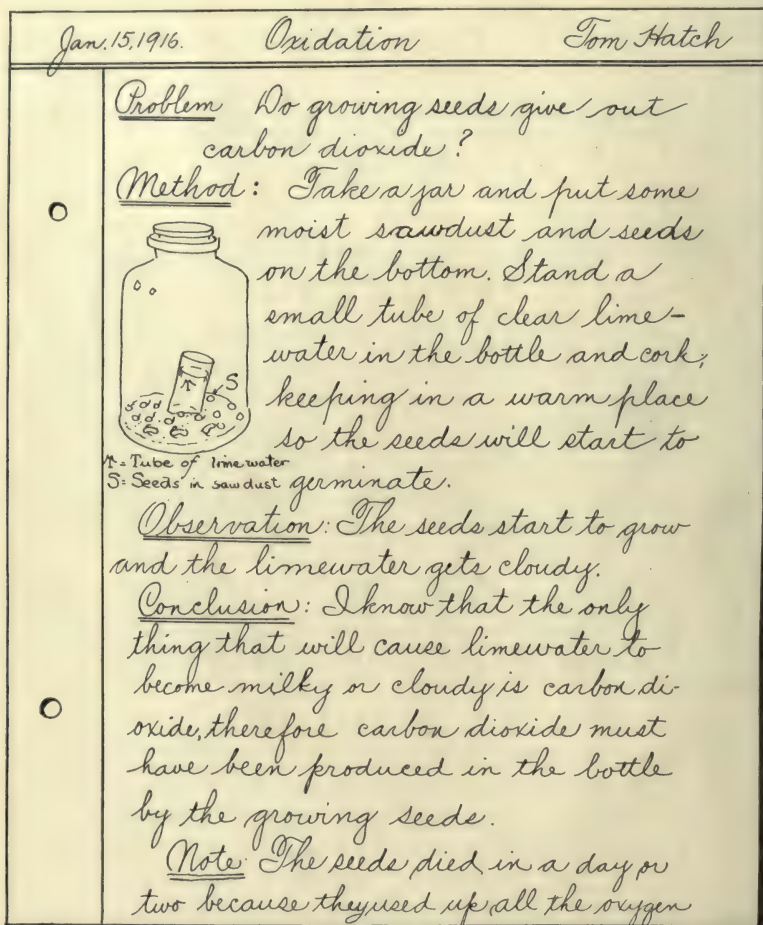 Jan. 15, 1916. Oxidation Tom Hatch
Problem Do growing seeds give out
carbon dioxide?
Method: Take a jar and put some
moist sawdust and seeds
on the bottom. Stand a
small tube of clear lime-
water in the bottle and cork,
keeping in a warm place
so the seeds will start to
germinate.
T
S
T = Tube of limewater
S = Seeds in sawdust
Observation: The seeds start to grow
and the limewater gets cloudy.
Conclusion: I know that the only
thing that will cause limewater to
become milky or cloudy is carbon di-
oxide, therefore carbon dioxide must
have been produced in the bottle
by the growing seeds.
Note The seeds died in a day or
two because they used up all the oxygen